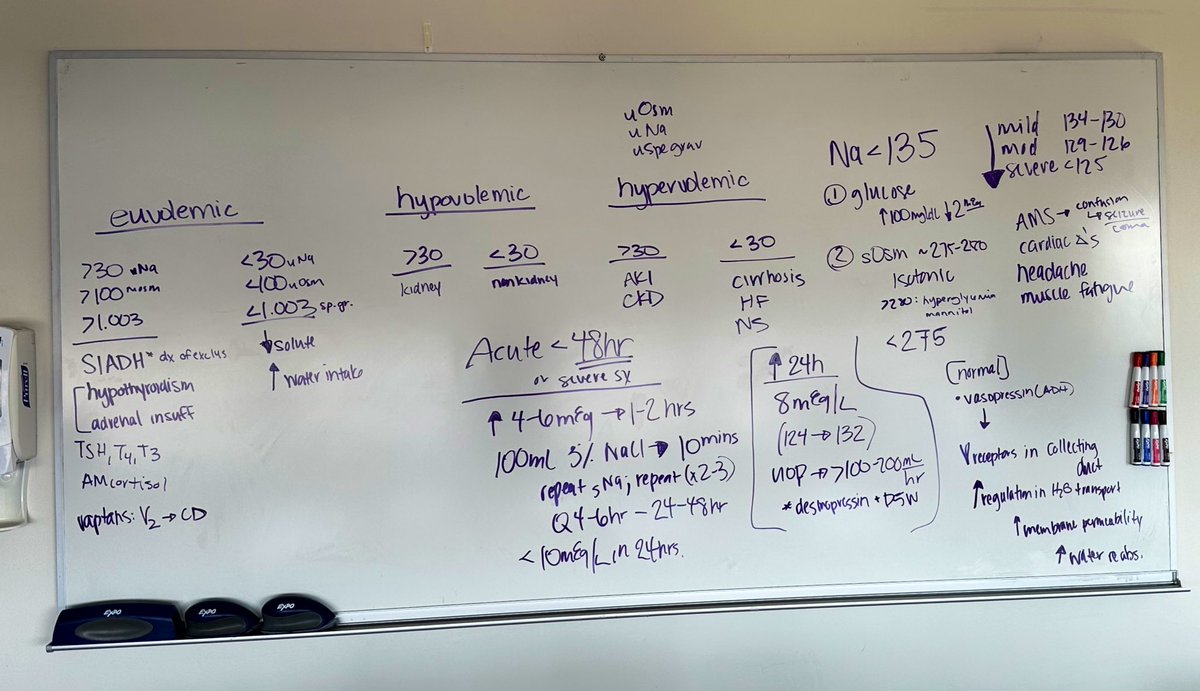 uOsm
uNa
uSpegrav
Na<135
mild 134-130
mod 129-126
severe <125
① glucose
↑100mg/dL ↓2 mEq
AMS → confusion
↳ seizure
coma
cardiac Δ's
headache
muscle fatigue
② sOsm ~275-280
Isotonic
>280: hyperglycemia
mannitol
<275
[normal]
• vasopressin (ADH)
↓
V receptors in collecting
duct
↑ regulation in H2O transport
↑ membrane permeability
↑ water reabs.
euvolemic
>30 uNa
>100 uosm
>1.003
SIADH* dx of exclus
hypothyroidism
adrenal insuff
TSH, T4, T3
AM cortisol
vaptans: V2 → CD
<30 uNa
<100 uosm
<1.003 sp.gr.
↓ solute
↑ water intake
hypovolemic
>30
kidney
<30
nonkidney
hypervolemic
>30
AKI
CKD
<30
cirrhosis
HF
NS
Acute < 48hr
or severe sx
↑ 4-6mEq → 1-2 hrs
100mL 3% NaCl → 10mins
repeat sNa; repeat (x2-3)
Q4-6hr - 24-48hr
<10mEq/L in 24hrs.
↑ 24h
8mEq/L
(124 → 132)
UOP → >100-200 mL/hr
* desmopressin + D5W
EXPO
EXPO
EXPO